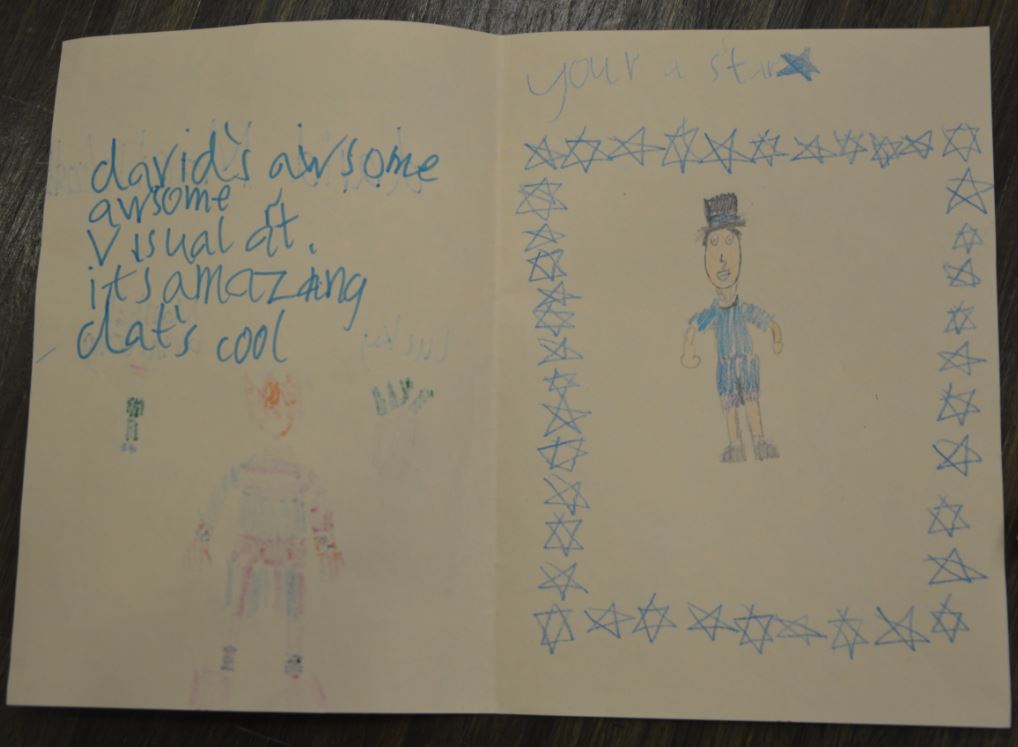 david's awsome
awsome
visual at.
its amazing
dat's cool
your a star